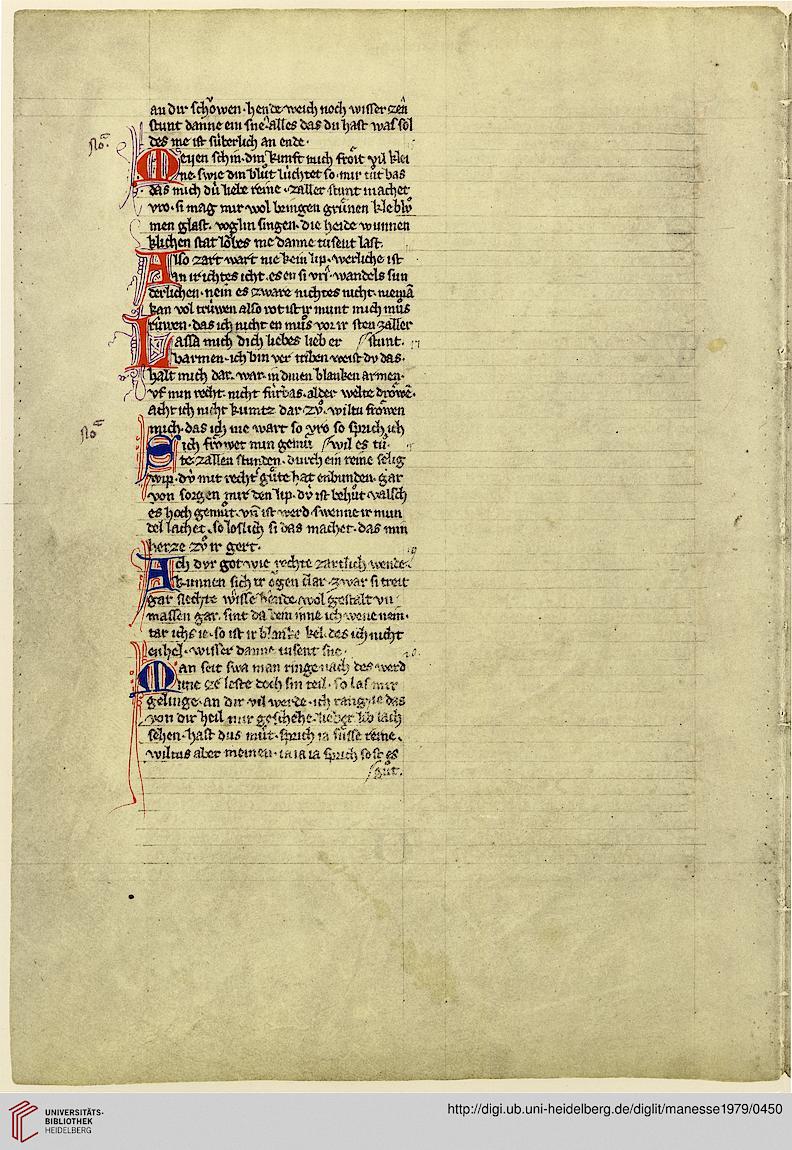 an dir schowen · hende weich noch wisser zen
stunt danne ein sne · alles das du hast was sol
des me ist suberlich an ende ·
No
Meyen schin · din kunft mich froit vil klei
ne · swie din blut luchtet so · mir tut bas
das mich du liebe reine · zaller stunt machet
vro · si mag mir wol bringen grunen kle blu
men glast · voglin singen · die heide wunnen
klichen stat lobes me danne tusent last ·
Also zart wart nie kein lip · werliche ist
an ir ichtes icht · es en si vri wandels sun
derlichen · nein es zware nichtes nicht · niemā
kan vol truwen also rot ist ir munt mich mus
truwen · das ich nicht en mus vor ir sten zaller
Lassa mich dich liebes lieb er stunt ·
barmen · ich bin ver triben weist du das ·
halt mich dar · war · in dinen blanken armen ·
vf min recht · nicht furbas · alder welte drowē ·
acht ich nicht kumtz dar zu · wiltu frowen
mich · das ich nie wart so vro so sprich ich
No
Sich frowet min gemu wil es tu ·
te · zallen stunden · durch ein reine selig
wip · du mit rechter gute hat enbunden · gar
von sorgen mir den lip · du ist behut · valsch
es hoch gemut · vn ist werd · swenne ir mun
del lachet · so loslich si das machet · das min
herze zu ir gert ·
Ach dur got wie rechte zartlich wende ·
kunnen sich ir ogen clar · zwar si treit
gar slechte wisse hende · wol gestalt vn
massen gar · sint da bein inne ich wene nein ·
tar ichs ie · so ist ir blanke kel · des ich nicht
enhel · wisser danne tusent sne ·
Man seit swa man ringe nach des werd
une ze leste doch sin teil · so las mir
gelinge · an dir vil werde · ich range ie das
von dir heil mir geschehe · lieber lib lach
sehen · hast dus mut · sprich ia susse reine ·
wiltus aber meinen · ia ia ia sprich so ist es
gut ·
UNIVERSITÄTS-
BIBLIOTHEK
HEIDELBERG
http://digi.ub.uni-heidelberg.de/diglit/manesse1979/0450